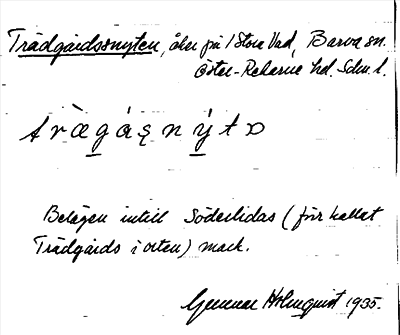 Trädgårdssnyten, åker på 1 Stora Vad, Barva sn.
Öster-Rekarne hd. Södm. l.
trægásnýtɒ
Belägen intill Söderlidas (förr kallat
Trädgårds i orten) mark.
Gunnar Holmquist 1935.